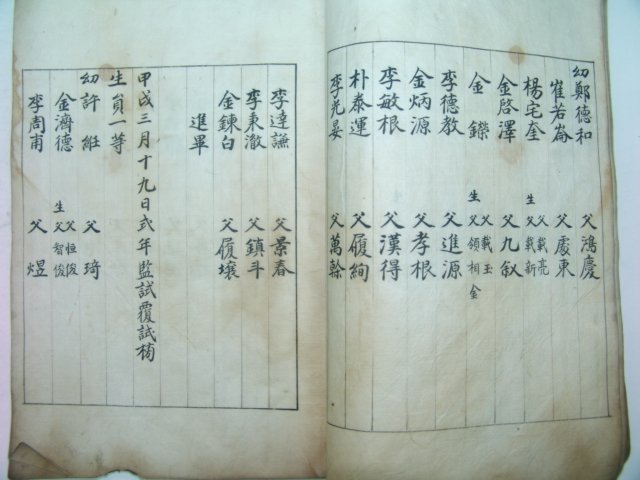 幼鄭德和 父鴻慶
崔若崙 父處東
楊宅奎 父載亮 生父載新
金啓澤 父九敘
金鑅 父載玉 生父領相金
李德教 父進源
金炳源 父孝根
李敏根 父漢得
朴泰運 父履絢
李光晏 父萬榦
李達謙 父景春
李東澈 父鎭斗
金鍊白 父履壤
進畢
甲戌三月十九日式年監試覆試榜
生員一等
幼許 父琦
金濟德 父恒俊 生父智俊
李周甫 父煜